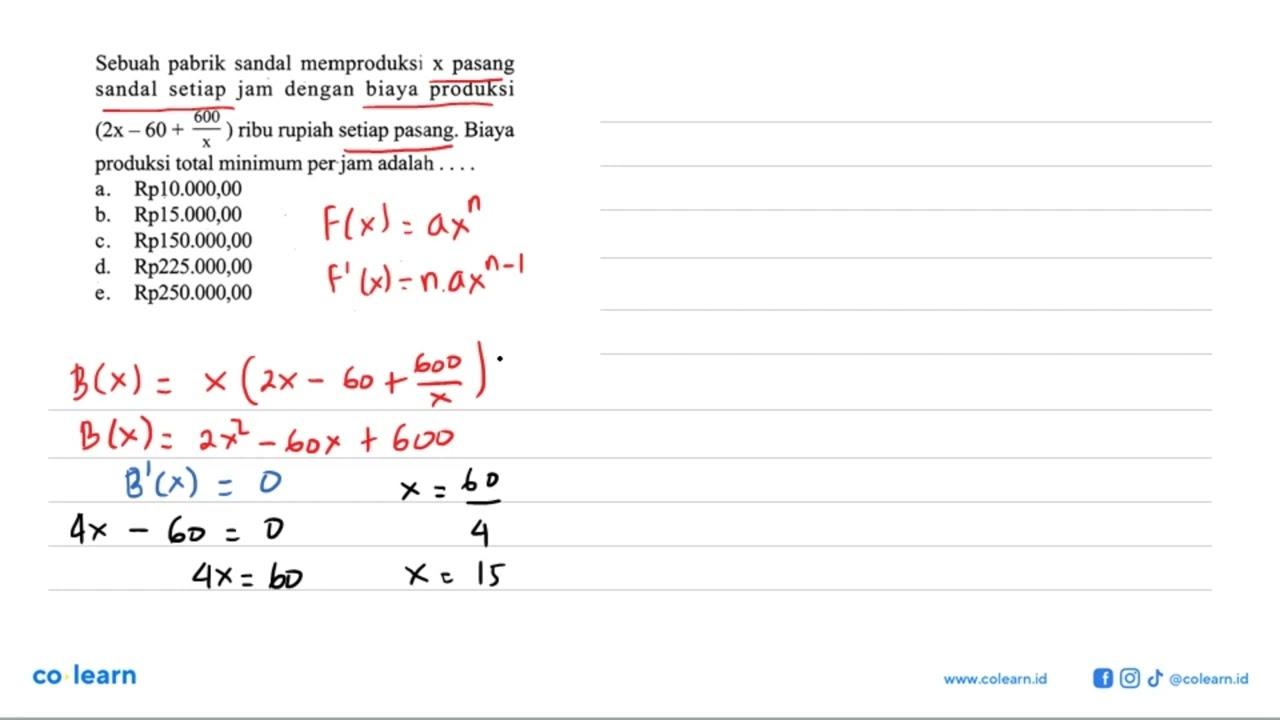 Sebuah pabrik sandal memproduksi x pasang
sandal setiap jam dengan biaya produksi
(2x – 60 + 600/x) ribu rupiah setiap pasang. Biaya
produksi total minimum per jam adalah . . . .
a. Rp10.000,00
b. Rp15.000,00
c. Rp150.000,00
d. Rp225.000,00
e. Rp250.000,00
F(x) = ax^n
F'(x) = n.ax^(n-1)
B(x) = x(2x - 60 + 600/x)
B(x) = 2x² - 60x + 600
B'(x) = 0
4x - 60 = 0
4x = 60
x = 60/4
x = 15
co learn
www.colearn.id
@colearn.id